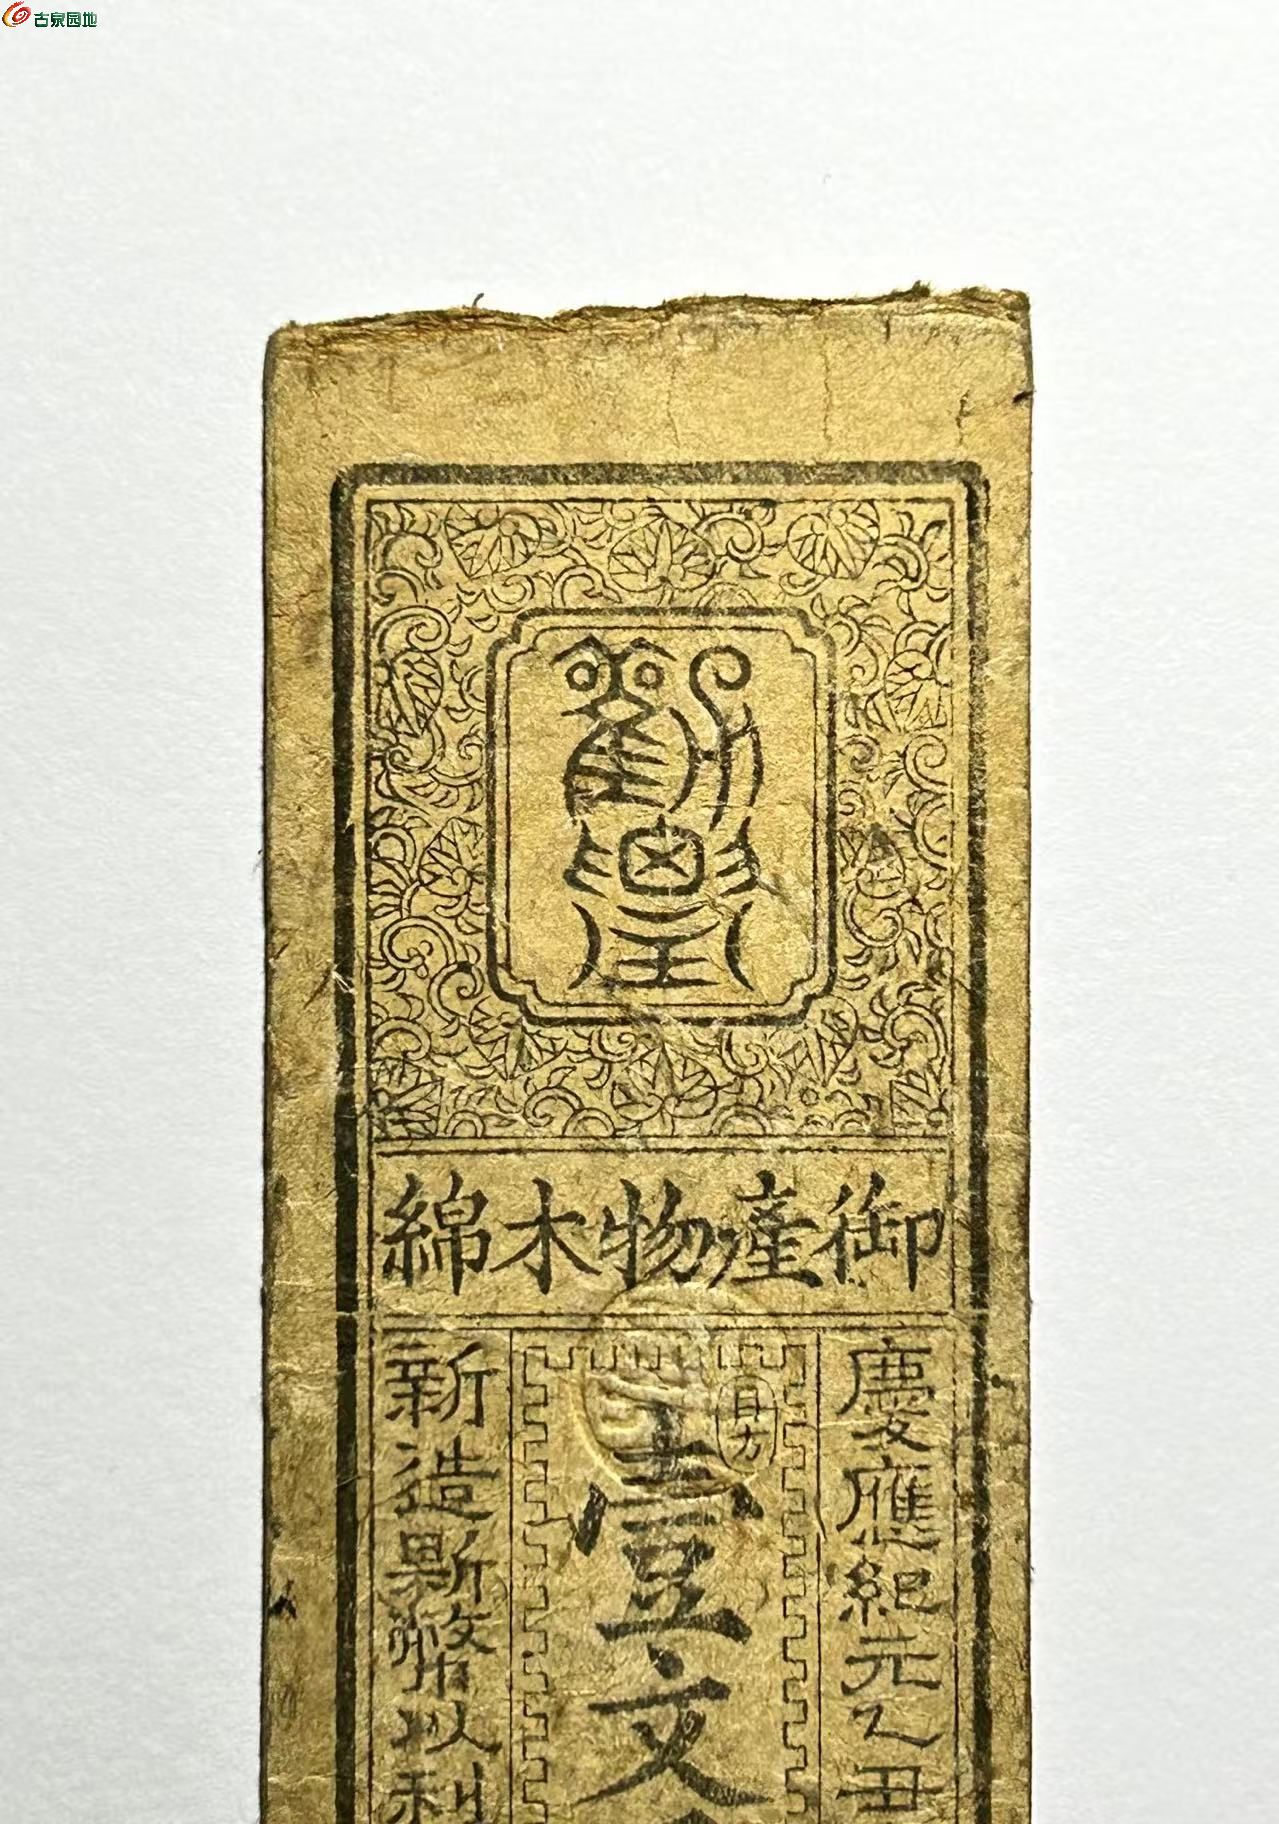 古泉园地
御産物木綿
慶應紀元乙丑
壹文
新造斯幣以利